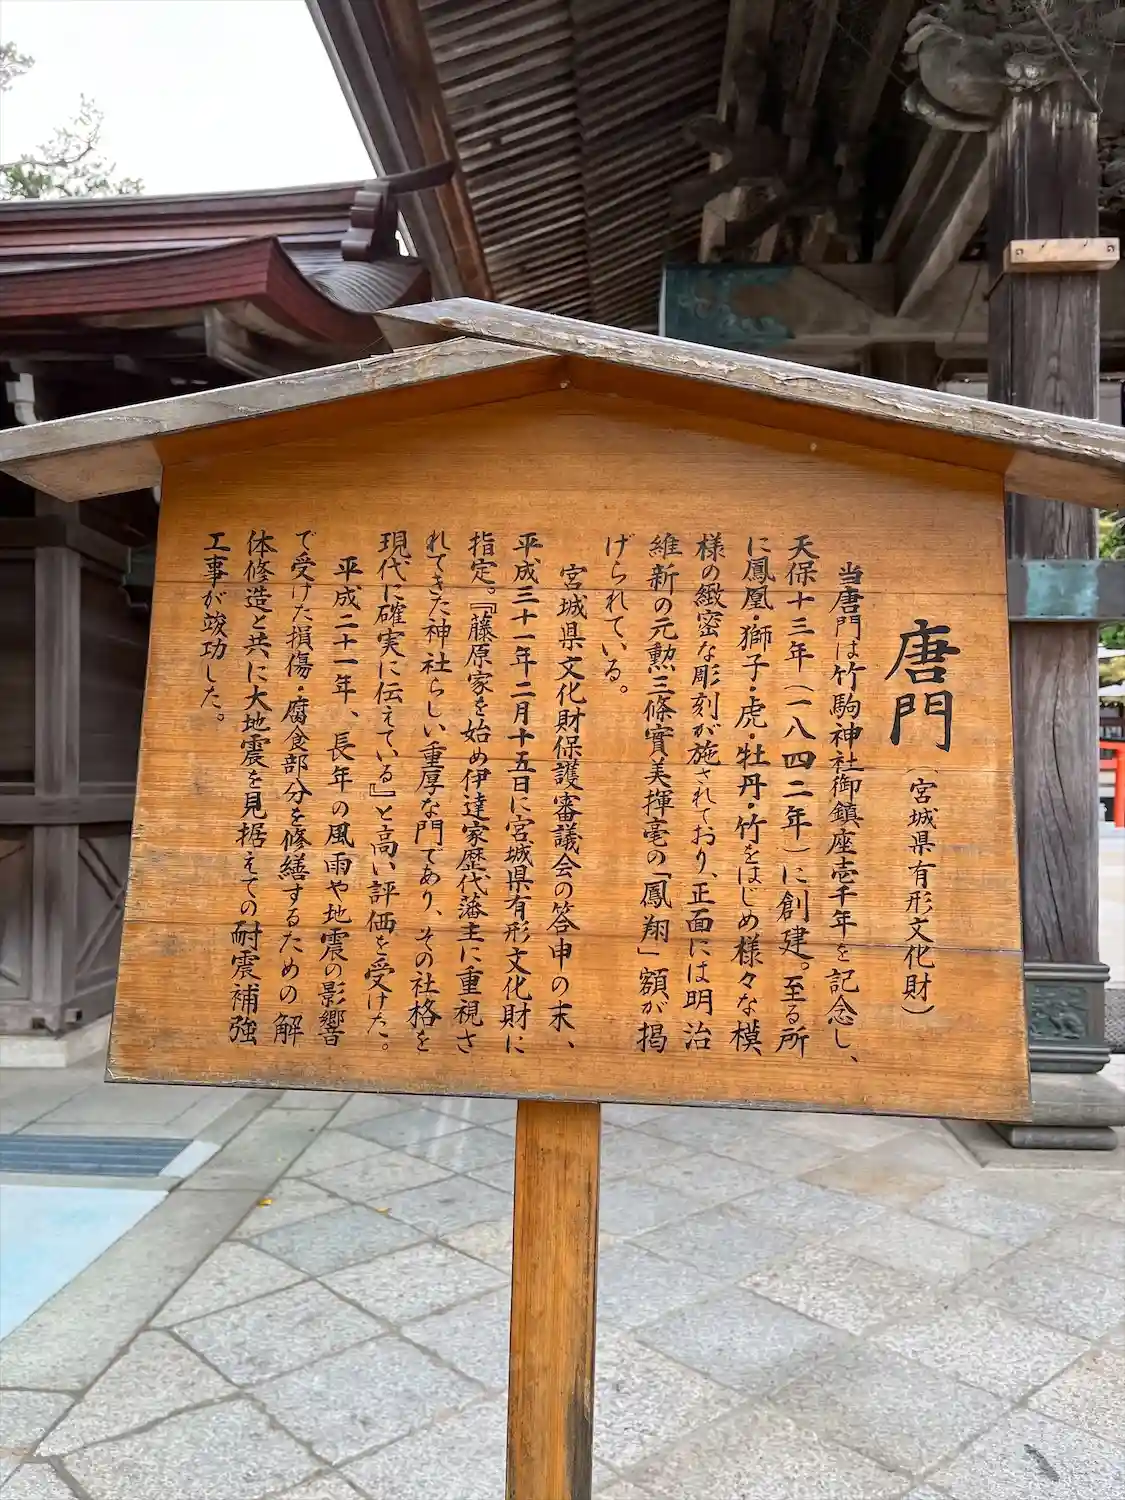 唐門（宮城県有形文化財）
当唐門は竹駒神社御鎮座壱千年を記念し、
天保十三年（一八四二年）に創建。至る所
に鳳凰・獅子・虎・牡丹・竹をはじめ様々な模
様の緻密な彫刻が施されており、正面には明治
維新の元勲三條實美揮毫の「鳳翔」額が掲
げられている。
宮城県文化財保護審議会の答申の末、
平成三十一年二月十五日に宮城県有形文化財に
指定。『藤原家を始め伊達家歴代藩主に重視さ
れてきた神社らしい重厚な門であり、その社格を
現代に確実に伝えている』と高い評価を受けた。
平成二十一年、長年の風雨や地震の影響
で受けた損傷・腐食部分を修繕するための解
体修造と共に大地震を見据えての耐震補強
工事が竣功した。